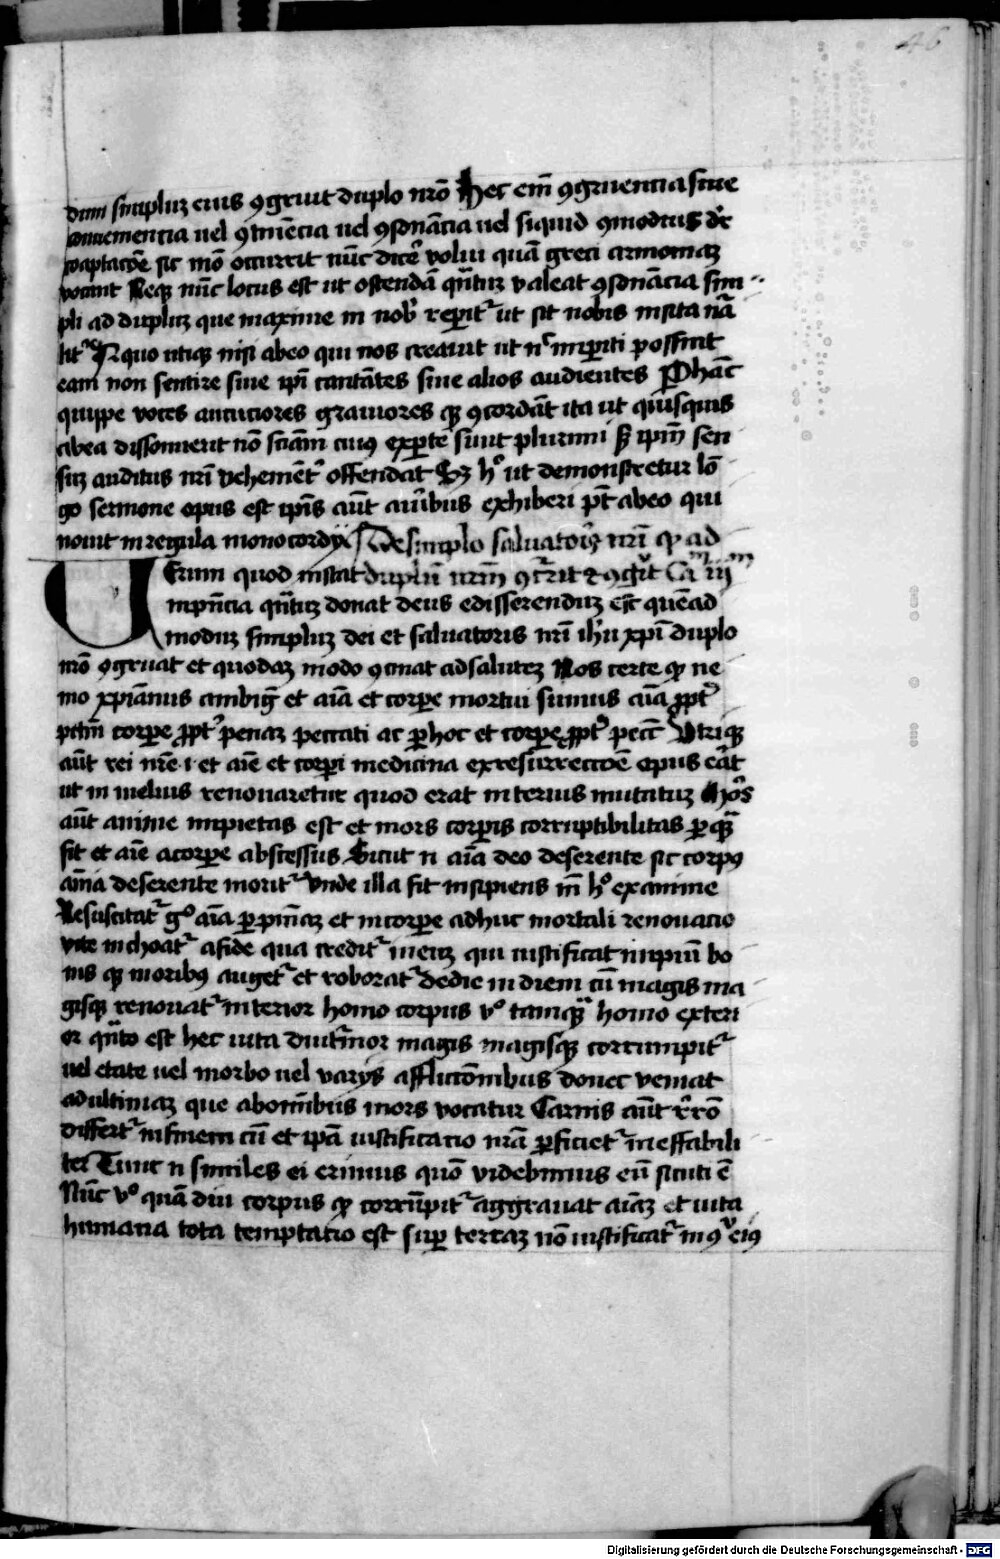 46
dum simpluz eius ꝯgruit duplo nr̄o Hec em̄ ꝯgruencia siue
conuenientia uel ꝯcinēcia uel ꝯsonācia uel siquid ꝯmodius dr̄
coaptacōe sic mō occurrit nūc dicē volui quā greci armoniaz
vocant Neqꝫ nūc locus est ut ostendā qn̄tuz valeat ꝯsonācia sim
pli ad dupluz que maxime in nob̉ reperit᷑ ut sit nobis insita nā
lit᷑ A quo utiqꝫ nisi abeo qui nos creauit ut n͛ imperiti possint
eam non sentire siue ip̄i cantātes siue alios audientes P hāc
quippe voces acuciores grauiores qꝫ ꝯcordāt ita ut quisquis
abea dissonuerit nō sciam̄ cuiꝰ expte sūnt plurimi sꝫ ip̄m sen
suz auditus nr̄i vehemēt᷑ offendat Sꝫ h᷒ ut demonstretur lō
go sermone opus est ip̄is aūt auribus exhiberi pt̄ abeo qui
nouit in regula monocordij De simplo saluatoris nr̄i qͥ ad
duplū nr̄m ꝯc̄rit ⁊ ꝯgͥit Caᵐ iijᵐ
Uerum quod instat
inpn̄cia qn̄tuz donat deus edisserenduz est quēad
moduz simpluz dei et saluatoris nr̄i ih̄u xp̄i duplo
nr̄o ꝯgruat et quodaz modo ꝯcinat adsalutez Nos certe qͥ ne
mo xp̄ianus ambiḡ et aīa et corpe mortui sumus aīa ꝓpt᷑
pctm̄ corpe ꝓpt᷑ penaz peccati ac ꝑhoc et corpe ꝓpt᷑ pecc̄ Utriqꝫ
aūt rei nr̄e .i. et aīe et corpi medicina exresurreccōe opus erat
ut in melius renouaretur quod erat in terius mutatuz Mors
aūt anime impietas est et mors corpis corruptibilitas ꝑ quā
fit et aīe acorpe abscessus Sicut n aīa deo deserente sic corpꝰ
aīa deserente morit᷑ vnde illa fit insipiens in̄ h᷒ exanime
Resuscitat᷑ g᷒ aīa ꝑ pīaz et in corpe adhuc mortali renouacio
vite inchoat᷑ a fide qua credit᷑ ineuz qui iustificat impiū bo
nis qꝫ moribꝰ auget᷑ et roborat᷑ dedie indiem cū magis ma
gisqꝫ renouat᷑ interior homo corpus v᷒ tamqꝫ homo exteri
or qn̄to est hec uita diut᷑nior magis magisqꝫ corrumpit᷑
uel etate uel morbo uel varijs afflictōnibus donec veniat
adultimaz que abom̄ibus mors vocatur Carnis aūt r̄r̄o
differt᷑ infinem cū et ip̄a iustificatio nr̄a ꝑficiet᷑ ineffabili
ter Tunc n similes ei erimus quō videbimus eū sicuti ē
Nūc v᷒ quā diu corpus qͥ corrūpit᷑ aggrauat aīaz et uita
humana tota temptatio est suꝑ terraz nō iustificat᷑ in ꝯͮ eiꝰ
Digitalisierung gefördert durch die Deutsche Forschungsgemeinschaft - DFG